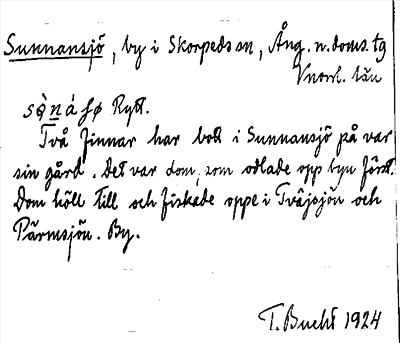 Sunnansjö, by i Skorpeds sn, Ång. n. doms. tg
Vnorrl. län
Rytt.
Två finnar har bott i Sunnansjö på var
sin gård. Det var dom, som odlade opp byn först.
Dom höll till och fiskade oppe i Tvåjsjön och
Pärmsjön. By.
T. Bucht 1924